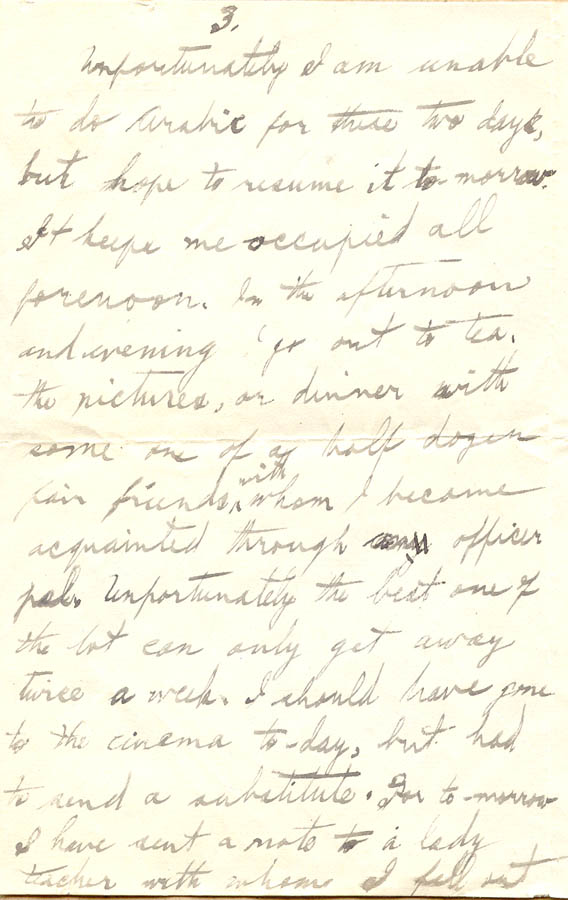 3.
Unfortunately I am unable
to do Arabic for these two days,
but hope to resume it to-morrow.
It keeps me occupied all
forenoon. In the afternoon
and evening I go out to tea,
the pictures, or dinner with
some one of a half dozen
fair friends, with whom I became
acquainted through my officer
pals. Unfortunately the best one of
the lot can only get away
twice a week. I should have gone
to the cinema to-day, but had
to send a substitute. For to-morrow
I have sent a note to a lady
teacher with whom I fell out